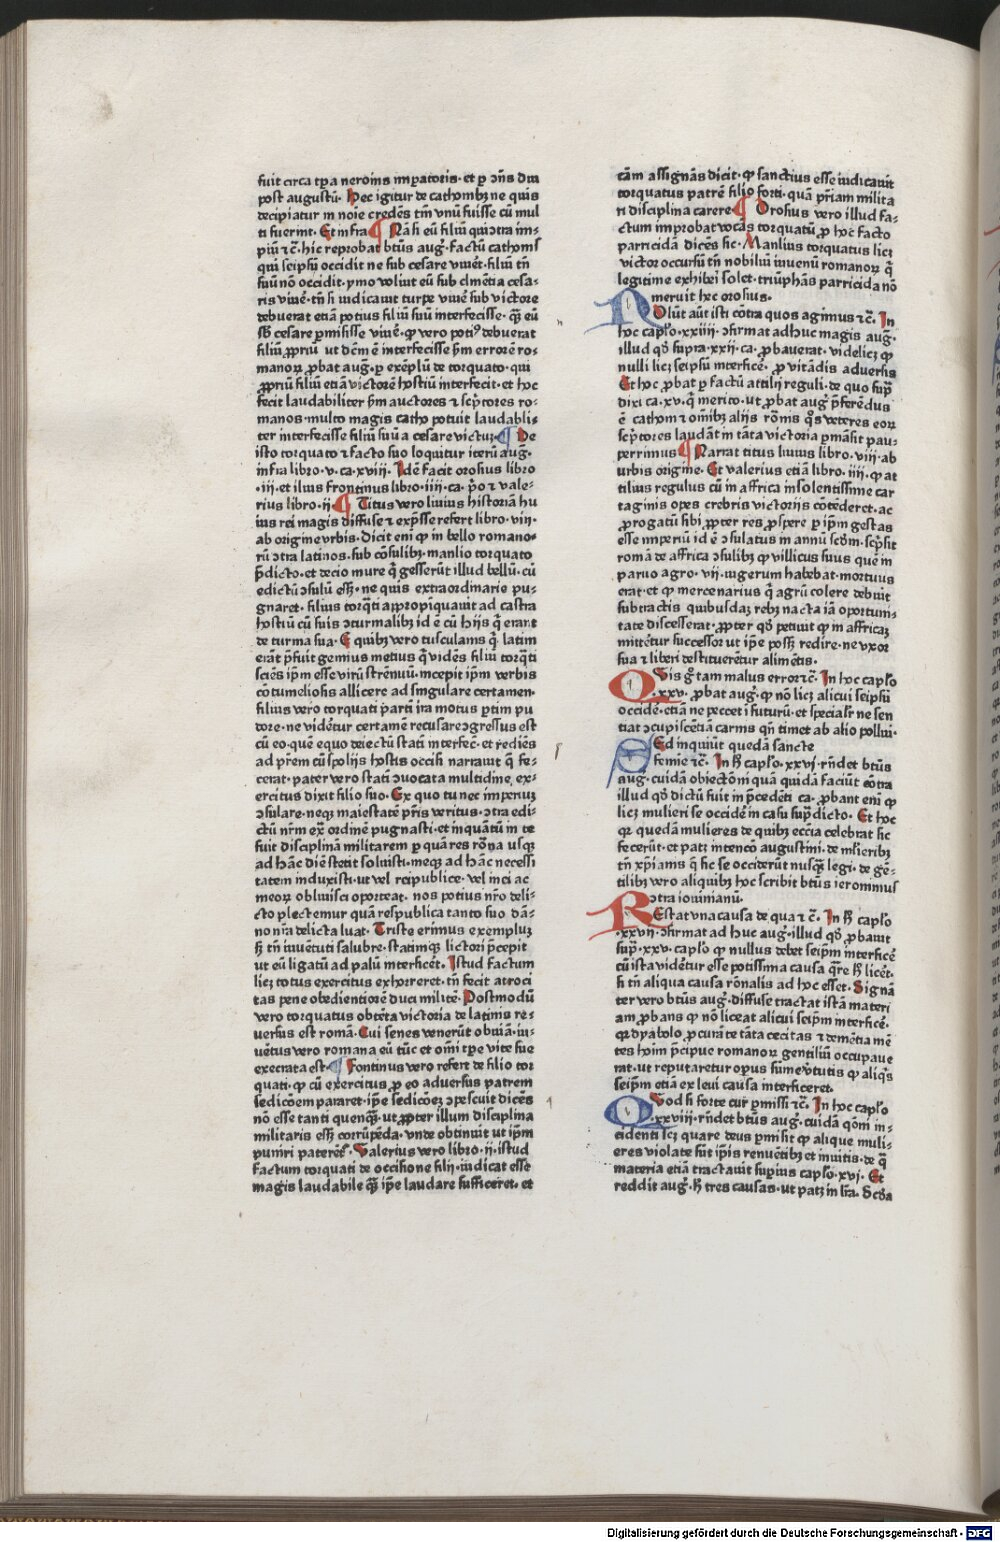 fuit circa tp̄a neronis imp̄atoris· et ꝑ ꝯñs diu
post augustū· Hec igitur de cathonibꝫ ne quis
decipiatur in noīe credēs tm̄ vnū fuisse cū mul
ti fuerint· Et infra ¶ Nā si eū filiū qui ꝯtra im-
piū ⁊c̄· hic reprobat btūs aug· factū cathonis
qui seipsū occidit ne sub cesare viuēt· filiū tn̄
suū nō occidit· ymo voluit eū sub clemētia cesa-
ris viuē· tn̄ si iudicauit turpe viuē sub victore
debuerat etiā potius filiū suū interfecisse· ꝙ̄ eū
sb̄ cesare ꝑmisisse viuē· ꝙ vero poti⁹ debuerat
filiū ꝓpriū ut dēm ē interfecisse ẜm errorē ro-
manoꝝ ꝓbat aug· ꝑ exemplū de torquato· qui
ꝓpriū filiū etiā victorē hostiū interfecit· et hoc
fecit laudabiliter ẜm auctores ⁊ sc̄ptores ro-
manos· multo magis catho potuit laudabili-
ter interfecisse filiū suū a cesare victuꝫ· ¶ De
isto torquato ⁊ facto suo loquitur iterū aug·
infra libro·v·ca·xviii· Idē facit orosius libro
·iii·et iulius frontinus libro·iiii·ca·p̄o ⁊ vale-
rius libro·ii· ¶ Titus vero liuius historiā hu
ius rei magis diffuse ⁊ exp̄sse refert libro·viii·
ab origine vrbis· Dicit eni ꝙ in bello romano-
rū ꝯtra latinos· sub cōsulibꝫ· manlio torquato
p̄dicto· et decio mure q̄ gesserūt illud bellū· cū
edictū ꝯsulū eēt· ne quis extraordinarie pu-
gnaret· filius torq̄ti appropinquauit ad castra
hostiū cū suis ꝯturmalibꝫ id ē cū hijs q̄ erant
de turma sua· E quibꝫ vero tusculanis q̄ latini
erāt p̄fuit gemius metius q̄ vidēs filiū torq̄ti
sciēs ip̄m esse virū strēnuū· incepit ip̄m verbis
cōtumeliosis allicere ad singulare certamen·
filius vero torquati ꝑtim ira motus ꝑtim pu
dore· ne vidētur certamē recusare ꝯgressus est
cū eo· quē equo deiectū stati interfec̄· et rediēs
ad prēm cū spolijs hostis occisi narrauit q̄ fe-
cerat· pater vero stati ꝯuocata multidine, ex-
ercitus dixit filio suo· Ex quo tu nec imperiuꝫ
ꝯsulare· neqꝫ maiestatē pr̄is veritus· ꝯtra edi-
ctū nr̄m ext̄ ordinē pugnasti· et inquātū in te
fuit disciplinā militarem ꝑ quā res rōna usqꝫ
ad hāc diē stetit soluisti· meqꝫ ad hāc necessi
tatem induxisti· ut vel reipublice· vel mei ac
meoꝝ obliuisci oporteat· nos potius nr̄o deli-
cto plectemur quā respublica tanto suo dā-
no nr̄a delicta luat· Triste erimus exempluꝫ
sꝫ tn̄ iuuētuti salubre· statimqꝫ lictori p̄cepit
ut eū ligatū ad palū interficēt· Istud factum
licꝫ totus exercitus exhorreret· tn̄ fecit atroci
tas pene obedientiorē duci militē· Postmodū
vero torquatus obtēta victoria de latinis re-
uersus est romā· Cui senes venerūt obuiā· iu-
uētus vero romana eū tūc et oīni tꝑe vite sue
execrata est· ¶ Fontinus vero refert de filio tor
quati· ꝙ cū exercitus ꝓ eo aduersus patrem
sedicōem pararet· ip̄e sedicōeꝫ ꝯpescuit dicēs
nō esse tanti quenqꝫ̄· ut ꝓpter illum disciplina
militaris eēt corrūpēda· vnde obtinuit ut ip̄m
puniri paterēt· Valerius vero libro·ij·istud
factum torquati de occisione filij· iudicat esse
magis laudabile ꝙ̄ ip̄e laudare sufficeret· et
cām assignās dicit· ꝙ sanctius esse iudicauit
torquatus patrē filio forti· quā pr̄iam milita
ri disciplina carere ¶ Orosius vero illud fa-
ctum improbat vocās torquatū ꝓ hoc facto
parricidā dicēs sic· Manlius torquatus licꝫ
victor occursū tn̄ nobiliū iuuenū romanoꝝ q̄
legitime exhiberi solet· triūphās parricida nō
meruit hec orosius·
NOlūt aūt isti cōtra quos agimus ⁊c̄· In
hoc caplo·xxiiii·ꝯfirmat adhuc magis aug·
illud qd̄ supra·xxij·ca·ꝓbauerat· videlicꝫ ꝙ
nulli licꝫ seipsū interficē· ꝓ vitādis aduersis
Et hoc ꝓbat ꝑ factū attilij reguli· de quo sup̄
dixi ca·xv·q̄ merito· ut ꝓbat aug· p̄ferēdus
ē cathoni ⁊ oīnibꝫ alijs rōnis q̄s veteres eoꝝ
sc̄ptores laudāt in tāta victoria ꝑmāsit pau-
perrimus ¶ Narrat titus liuius libro·viii·ab
urbis origine· Et valerius etiā libro·iiii· ꝙ at
tilius regulus cū in affrica insolentissime car
taginis opes crebris victorijs cōtēderet· ac
ꝓrogatū sibi ꝓpter res ꝓspere ꝑ ip̄m gestas
esse imperiū id ē ꝯsulatus in annū scd̄m· sc̄psit
romā de affrica ꝯsulibꝫ ꝙ villicus suus quē in
paruo agro·vij·iugerum habebat· mortuus
erat· et ꝙ mercenarius q̄ agrū colere debuit
subtractis quibusdaꝫ rebꝫ nacta iā oportuni-
tate discesserat· ꝓpter qd̄ petiuit ꝙ in affricaꝫ
mittētur successor ut ip̄e posꝫ redire· ne vxor
sua ⁊ liberi destituerētur alimētis·
QVis gͦ tam malus error ⁊c̄· In hoc caplo
·xxv· ꝓbat aug· ꝙ nō licꝫ alicui seipsū
occidē· etiā ne peccet ī futurū· et specialr̄ ne sen
tiat ꝯcupiscētiā carnis qn̄ timet ab alio pollui·
SEd inquiūt quedā sancte
femīe ⁊c̄· In hꝰ caplo·xxvj·rn̄det btūs
aug· cuidā obiectōni quā quidā faciūt cōtra
illud qd̄ dictū fuit in p̄cedēti ca· ꝓbant eni ꝙ
licꝫ mulieri se occidē in casu sup̄dicto· Et hoc
qꝛ quedā mulieres de quibꝫ eccīa celebrat sic
fecerūt· et patꝫ intencō augustini· de mlieribꝫ
tn̄ xp̄ianis q̄ sic se occiderūt nusqꝫ̄ legi· de gē-
tilibꝫ vero aliquibꝫ hoc scribit btūs ieronimus
ꝯtra iouinianū·
REstat vna causa de qua ⁊c̄· In hꝰ caplo
·xxvij·ꝯfirmat ad huc aug· illud qd̄ ꝓbauit
sup̄·xxv·caplo ꝙ nullus debet seip̄m interficē
cū ista vidētur esse potissima causa q̄re hꝰ licēt·
si tn̄ aliqua causa rōnalis ad hoc esset· Signā
ter vero btūs aug· diffuse tractat istā materi
am ꝓbans ꝙ nō liceat alicui seip̄m interficē·
qꝛ dyabolo ꝓcurāte tāta cecitas ⁊ demētia mē
tes hoīm p̄cipue romanoꝝ gentiliū occupaue
rat· ut reputaretur opus sume v̄tutis ꝙ aliq̄s
seip̄m etiā ex leui causa interficeret·
QVod si forte cur ꝑmissi ⁊c̄· In hoc caplo
·xxviij·rn̄det btūs aug· cuidā qōni in-
cidenti scꝫ quare deus ꝑmisit ꝙ alique muli-
eres violate sūt ip̄is renuētibꝫ et inuitis· de q̄
materia etiā tractauit supius caplo·xvj· Et
reddit aug· hꝰ tres causas· ut patꝫ in lr̄a· Scd̄a
Digitalisierung gefördert durch die Deutsche Forschungsgemeinschaft - DFG